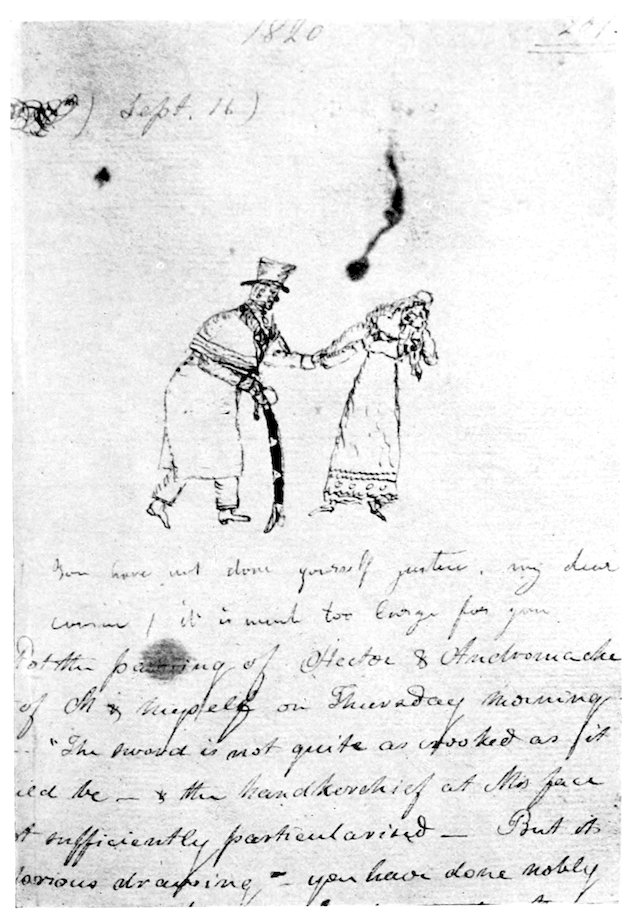 1820
Sept. 16)
You have not done yourself justice, my dear
cousin, it is much too large for you
Not the parting of Hector & Andromache
of M & myself on Thursday morning
"The sword is not quite as crooked as it
be — & the handkerchief at M's face
sufficiently particularised — But its
glorious drawing — you have done nobly